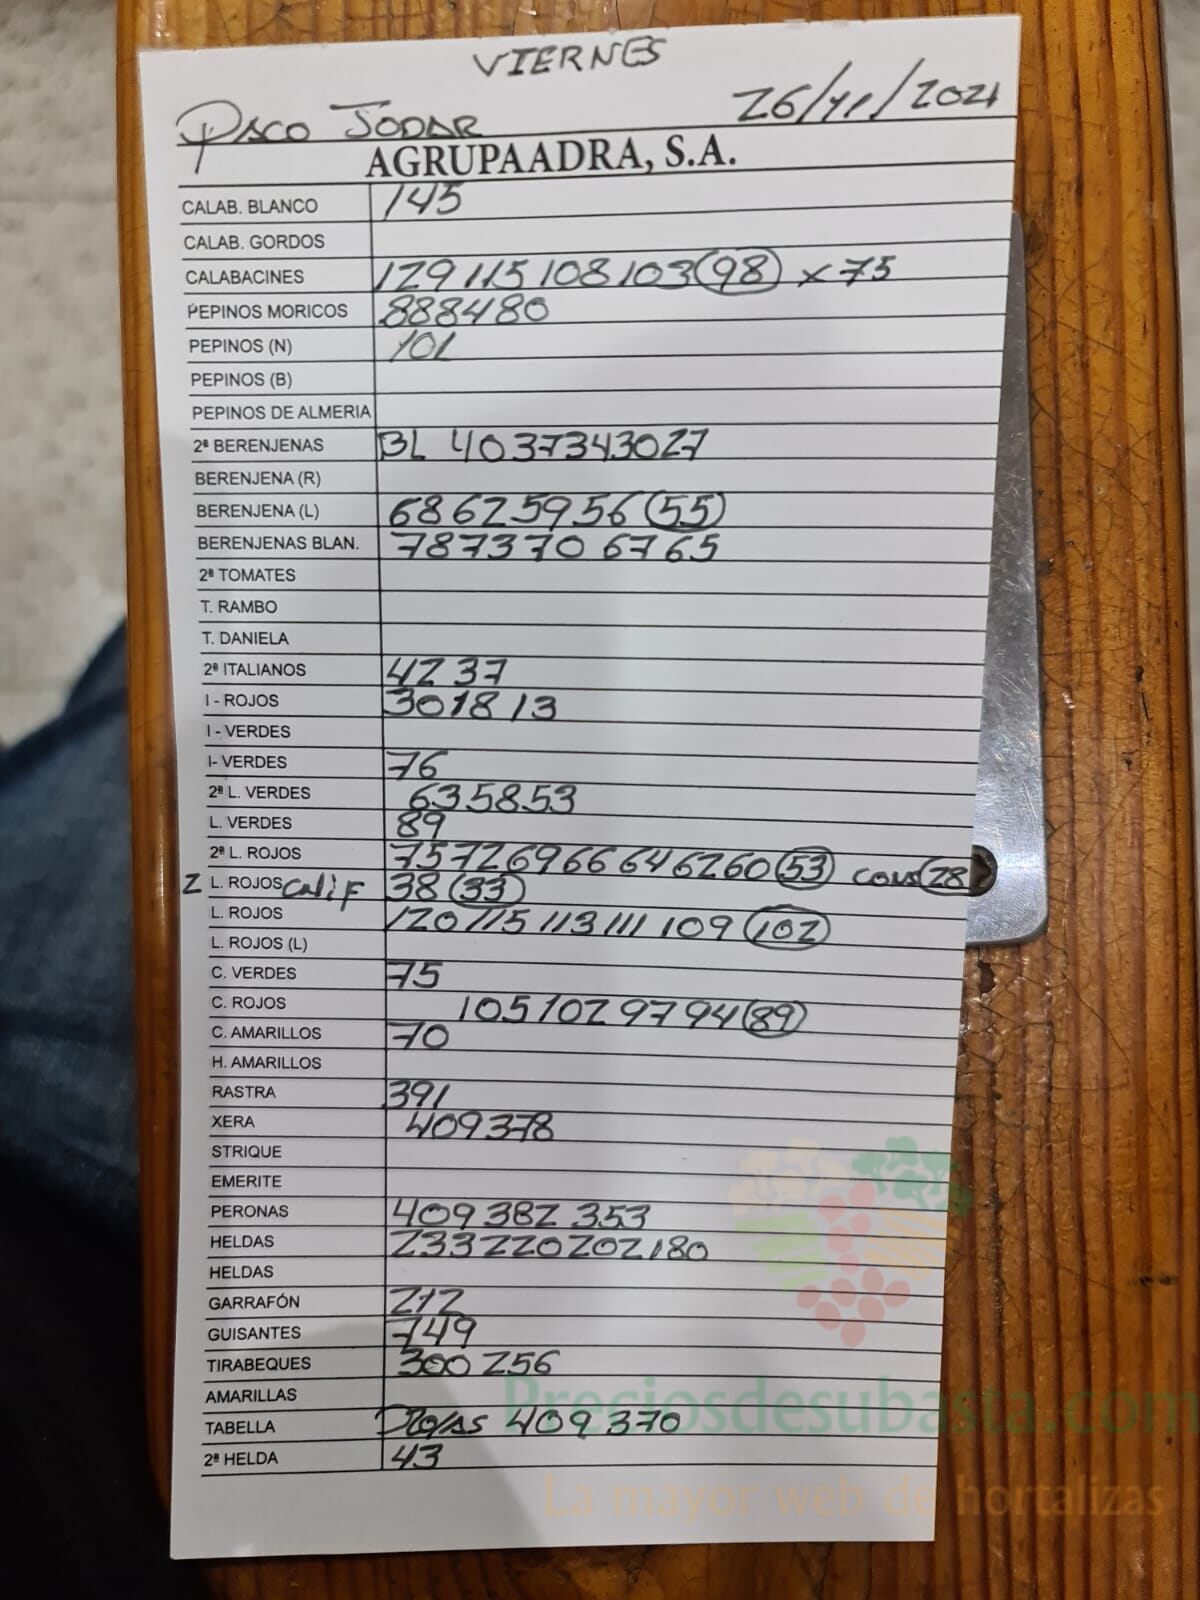 VIERNES
PACO JODAR 26/11/2021
AGRUPAADRA, S.A.
CALAB. BLANCO 145
CALAB. GORDOS
CALABACINES 129 115 108 103 98 x 75
PEPINOS MORICOS 88 84 80
PEPINOS (N) 101
PEPINOS (B)
PEPINOS DE ALMERIA
2ª BERENJENAS BL 40 37 34 30 27
BERENJENA (R)
BERENJENA (L) 68 62 59 56 55
BERENJENAS BLAN. 78 73 70 67 65
2ª TOMATES
T. RAMBO
T. DANIELA
2ª ITALIANOS 42 37
I - ROJOS 30 18 13
I - VERDES
I- VERDES 76
2ª L. VERDES 63 58 53
L. VERDES 89
2ª L. ROJOS 75 72 69 66 64 62 60 53 cons 28
2 L. ROJOS calif 38 33
L. ROJOS 120 115 113 111 109 102
L. ROJOS (L)
C. VERDES 75
C. ROJOS 105 102 97 94 89
C. AMARILLOS 70
H. AMARILLOS
RASTRA 391
XERA 409 378
STRIQUE
EMERITE
PERONAS 409 382 353
HELDAS 233 220 202 180
HELDAS
GARRAFÓN 212
GUISANTES 749
TIRABEQUES 300 256
AMARILLAS
TABELLA 409 370
2ª HELDA 43
Preciosdesubasta.com
La mayor web de hortalizas